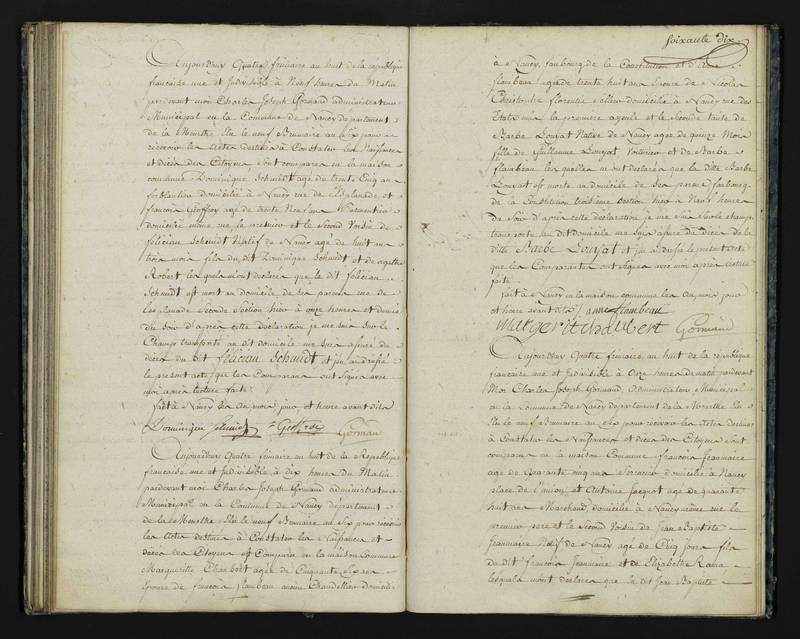 Aujourdhuy Quatre frimaire an huit de la republique
francaise une et Indivisible à Neuf heures du Matin
pardevant moi Charles Joseph Gormand administrateur
Municipal en la Commune de Nancy departement
de la Meurthe Elu le neuf Brumaire an Six pour
recevoir les Actes destinés à Constater les Naissances
et décès des Citoyens sont comparus en la maison
commune Dominique Schmidt agé de trente Cinq ans
ferblantier domicilié à Nancy rue de l'Esplanade, et
francois Geoffroy agé de trente Neuf ans
domicilié même rue le premier pere et le Second Voisin de
felicien Schmidt Natif de Nancy agé de huit ans
trois mois fils du dit Dominique Schmidt et de agathe
Robert lesquels m'ont declaré que le dit félicien
Schmidt est mort au domicile de ses parens rue de
l'esplanade Seconde Section hier à onze heures et demie
du Soir d'après cette déclaration je me suis Sur le
Champ transporté au dit domicile me suis assuré du
décès du dit félicien Schmidt et j'ai dressé
le present acte que les Comparans ont signé avec
moi après lecture faite
fait à Nancy les an mois jour et heure avant dits
Dominique Schmidt F Geoffroy Gormand
Aujourdhuy Quatre frimaire an huit de la Republique
francaise une et Indivisible, à dix heures Du Matin
pardevant moi Charles Joseph Gormand administrateur
Municipal en la Commune de Nancy département
de la Meurthe Elu le neuf Brumaire an Six pour recevoir
les Actes destinés à Constater les Naissances et
décès des Citoyens est Comparu en la maison Commune
Marguerite Chaubert agée de Cinquante ans
Epouse de francois flambeau ancien Chandellier domicilié
soixante dix
à Nancy, faubourg de la Constitution et d'Anne
flambeau agée de trente huit ans Epouse de Nicolas
Christophe florentin Sellier domicilié à Nancy rue des
Etats unis la premiere ayeule et la Seconde tante de
Barbe Louyat Native de Nancy agée de quinze Mois
fille de Guillaume Louyat Voiturier et de Barbe
flambeau lesquelles m'ont déclaré que la ditte Barbe
Louyat est morte au domicile de Ses parens faubourg
de la Constitution Section hier à Neuf heures
du Soir d'après cette déclaration je me suis Sur le champ
transporté au dit domicile me suis assuré du décès de la
ditte Barbe Louyat et j'ai dressé le présent acte
que les Comparantes ont Signé avec moi après lecture
faite
fait à Nancy en la maison commune les an mois jour
et heure avant dits anne flambeau
Margerit Chaubert Gormand
Aujourdhuy Quatre frimaire an huit de la république
francaise une et Indivisible à Onze heures du matin pardevant
Moi Charles Joseph Gormand Administrateur Municipal
en la Commune de Nancy departement de la Meurthe
Elu le neuf Brumaire an Six pour recevoir les Actes destinés
à Constater les Naissances et décès des Citoyens sont
comparus en la maison Commune francois Jeanmaire
agé de Quarante cinq ans domicilié à Nancy
place de l'union, et Antoine Jacquot agé de quarante
huit ans Marchand, domicilié à Nancy même rue le
premier pere et le Second Voisin de Jean Baptiste
Jeanmaire Natif de Nancy agé de Cinq jours fils
du dit francois Jeanmaire et de Elizabethe
lesquels m'ont déclaré que le dit Jean Baptiste